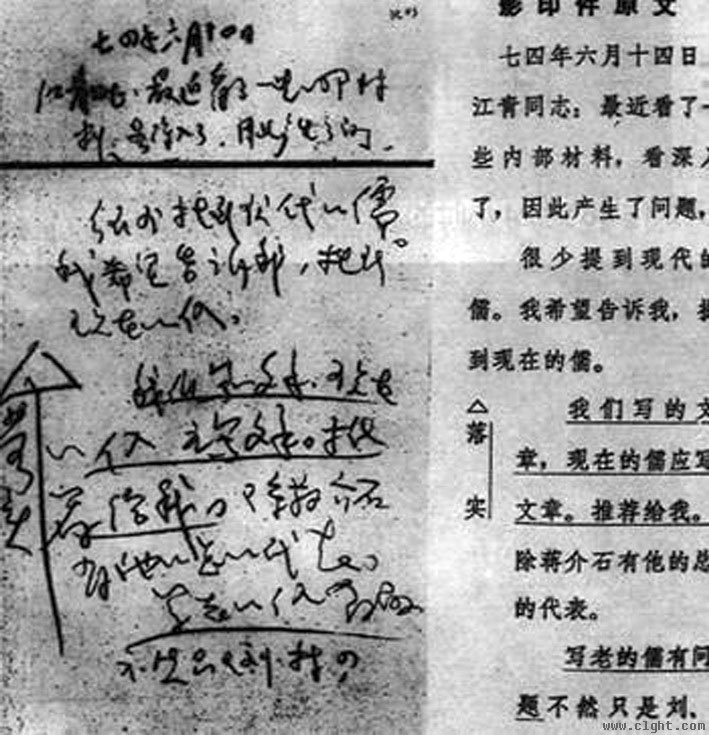 七四年六月十四日
江青同志：最近看了一些内部材
料，看深入了，因此产生了问
很少提到现代的儒。
我希望告诉我，提到
现在的儒。
我们写的文章，现在
的儒应写文章。推
荐给我。除蒋介石
有他的总的代表。
写老的儒有问题
不然只是刘、林
落实
影印件原文
七四年六月十四日
江青同志：最近看了一
些内部材料，看深入
了，因此产生了问题，
很少提到现代的
儒。我希望告诉我，提
到现在的儒。
我们写的文
章，现在的儒应写
文章。推荐给我。
除蒋介石有他的总
的代表。
写老的儒有问
题不然只是刘、
△落实
www.clght.com